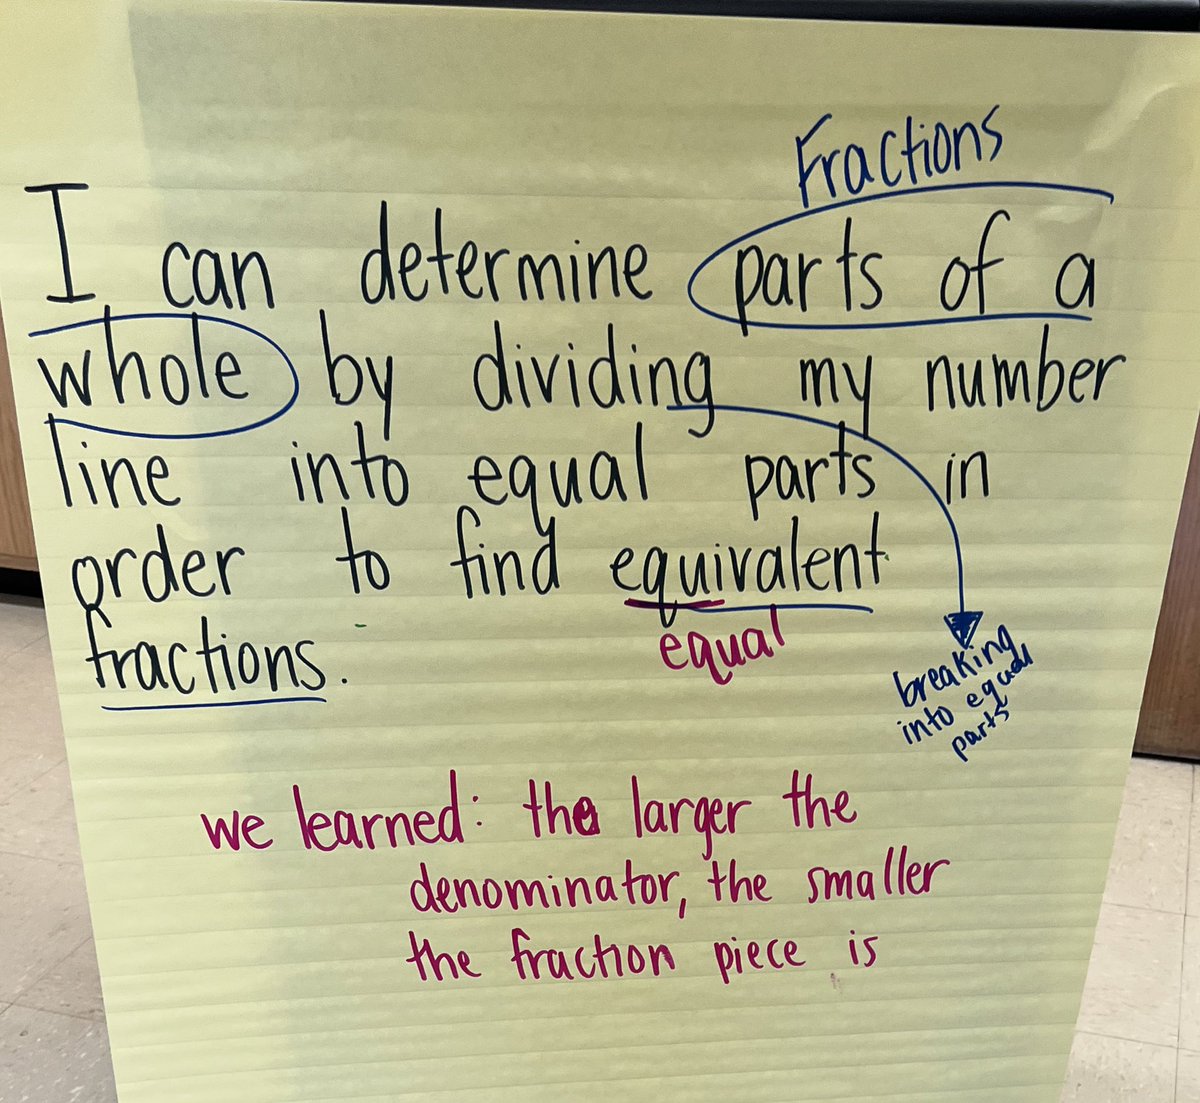 Fractions
I can determine parts of a
whole by dividing my number
line into equal parts in
order to find equivalent
fractions.
equal
breaking
into equal
parts
we learned: the larger the
denominator, the smaller
the fraction piece is